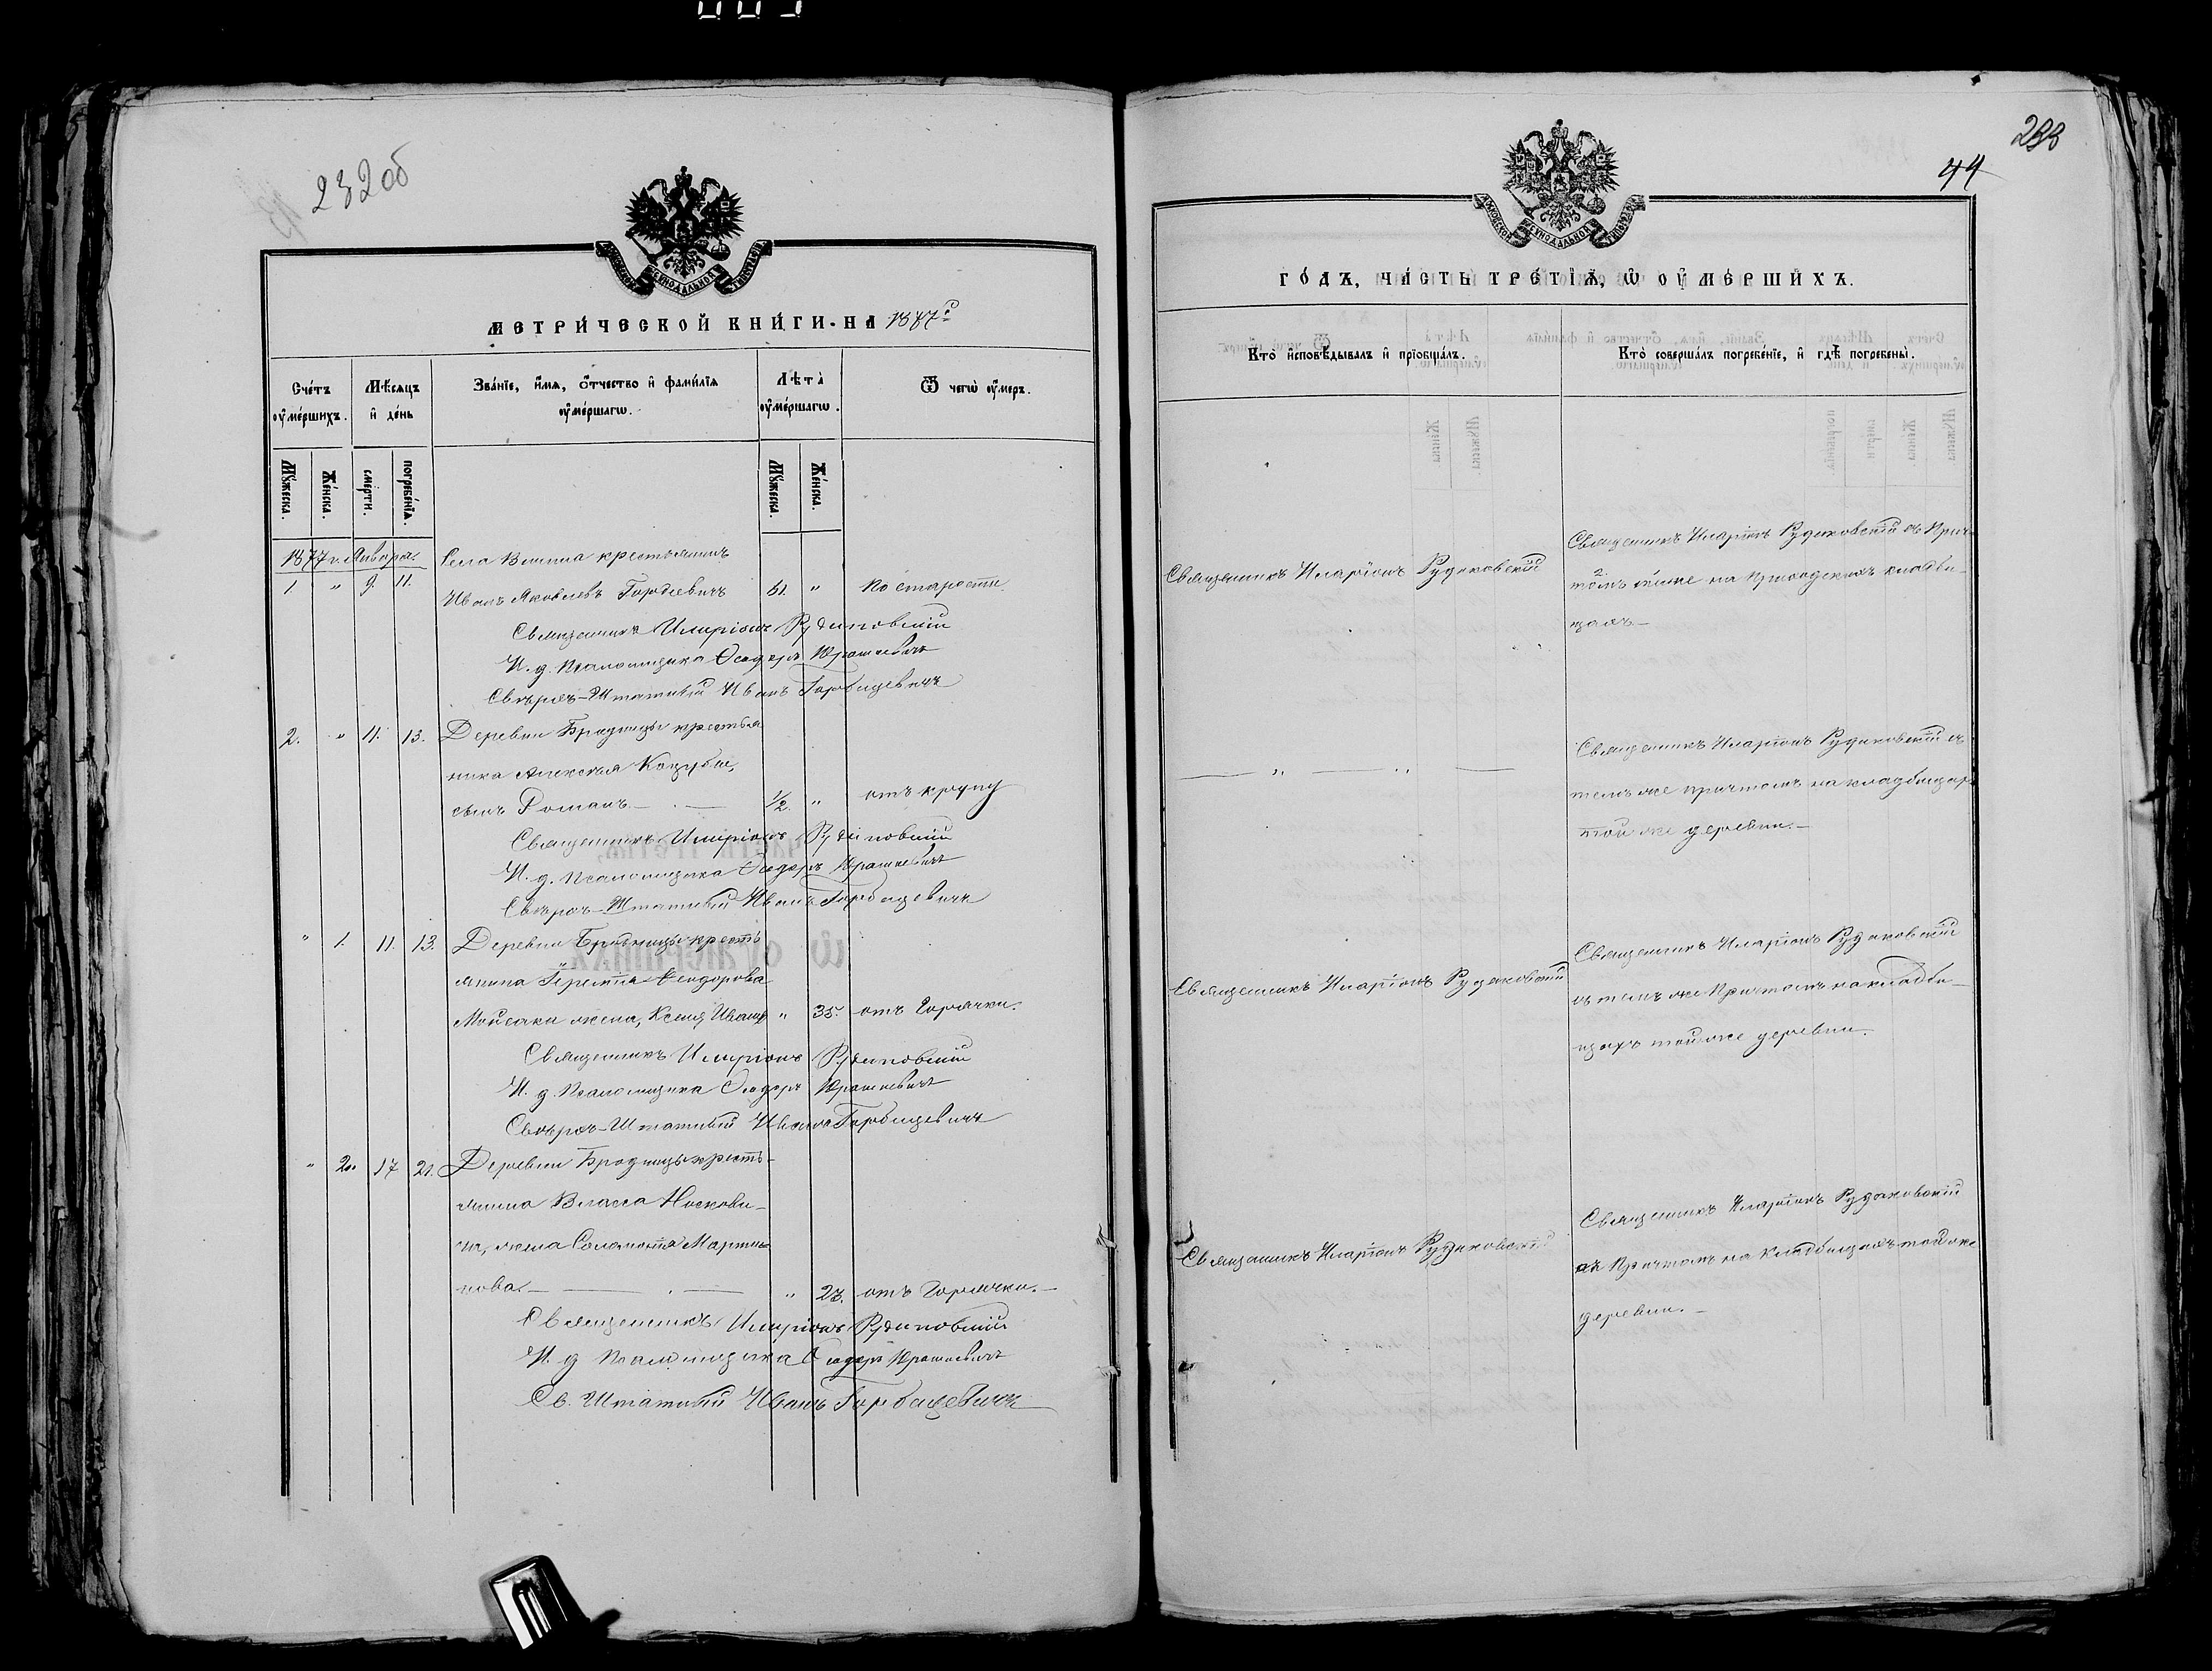 232об
МЕТРИ́ЧЕСКОЙ КНИ́ГИ НА 1877г.
Сче́тъ ᲂу҆ме́ршихъ.
Мѣ́сяцъ и҆ де́нь
Зва́нїе, и҆́мѧ, ѻ҆́тчество и҆ фами́лїѧ ᲂу҆ме́ршагѡ.
Лѣ́та ᲂу҆ме́ршагѡ.
Ѿ чегѡ̀ ᲂу҆́меръ.
Мꙋ́жеска.
Же́нска.
сме́рти.
погребе́нїѧ.
Мꙋ́жеска.
Же́нска.
1877 г. Января.
Села крестьянинъ
1. " 9. 11. Иванъ Яковлевъ 61. " по старости.
Священникъ Иларіонъ Рудаковскій
И. д. Псаломщика Ѳеодоръ Юрашкевичъ
Сверхъ-Штатный Иванъ Горбацевичъ
2. " 11. 13. Деревни Бродницы крестья
нина Алексѣя
сынъ Романъ. — 1/2. " отъ крупу
Священникъ Иларіонъ Рудаковскій
И. д. Псаломщика Ѳеодоръ Юрашкевичъ
Сверхъ-Штатный Иванъ Горбацевичъ
" 1. 11. 13. Деревни Бродницы кресть
янина Ѳеодорова
жена, Иван " 35. отъ Горячки.
Священникъ Иларіонъ Рудаковскій
И. д. Псаломщика Ѳеодоръ Юрашкевичъ
Сверхъ-Штатный Иванъ Горбацевичъ
" 2. 17 21. Деревни Бродницы кресть-
янина ВласаНоскови-
ча, жена Соломонія Марты-
нова. — " 23. отъ Горячки. —
Священникъ Иларіонъ Рудаковскій
И. д. Псаломщика Ѳеодоръ Юрашкевичъ
Св. Штатный Иванъ Горбацевичъ
233
44
ГО́ДЪ, ЧА́СТЬ ТРЕ́ТЇѦ, Ѡ҆ ОУ҆МЕ́РШИХЪ.
Кто̀ и҆сповѣ́дывалъ и҆ прїѻбща́лъ.
Кто̀ соверша́лъ погребе́нїе, и҆ гдѣ̀ погребены̀.
Священникъ Иларіонъ Рудаковскій
Священникъ Иларіонъ Рудаковскій съ Прич-
томъ на Приходскихъ кладби-
щахъ —
— " — " —
Священникъ Иларіонъ Рудаковскій съ
тѣмъ же причтомъ на кладбищахъ
той же деревни. —
Священникъ Иларіонъ Рудаковскій
Священникъ Иларіонъ Рудаковскій
съ тѣмъ же Причтомъ на кладби-
щахъ той же деревни.
Священникъ Иларіонъ Рудаковскій
Священникъ Иларіонъ Рудаковскій
съ Причтомъ на Кладбищахъ той же
деревни. —